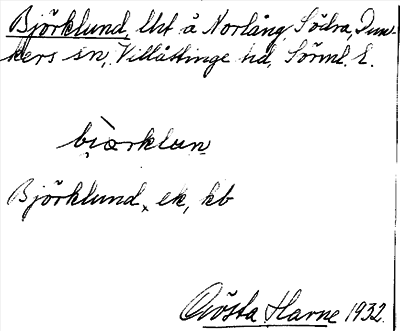 Björklund, lht å Norlång, Södra, Dun-
kers sn, Villåttinge hd, Sörml. l.
bjòrklun
Björklund, ek, kb
Gösta Harne 1932.